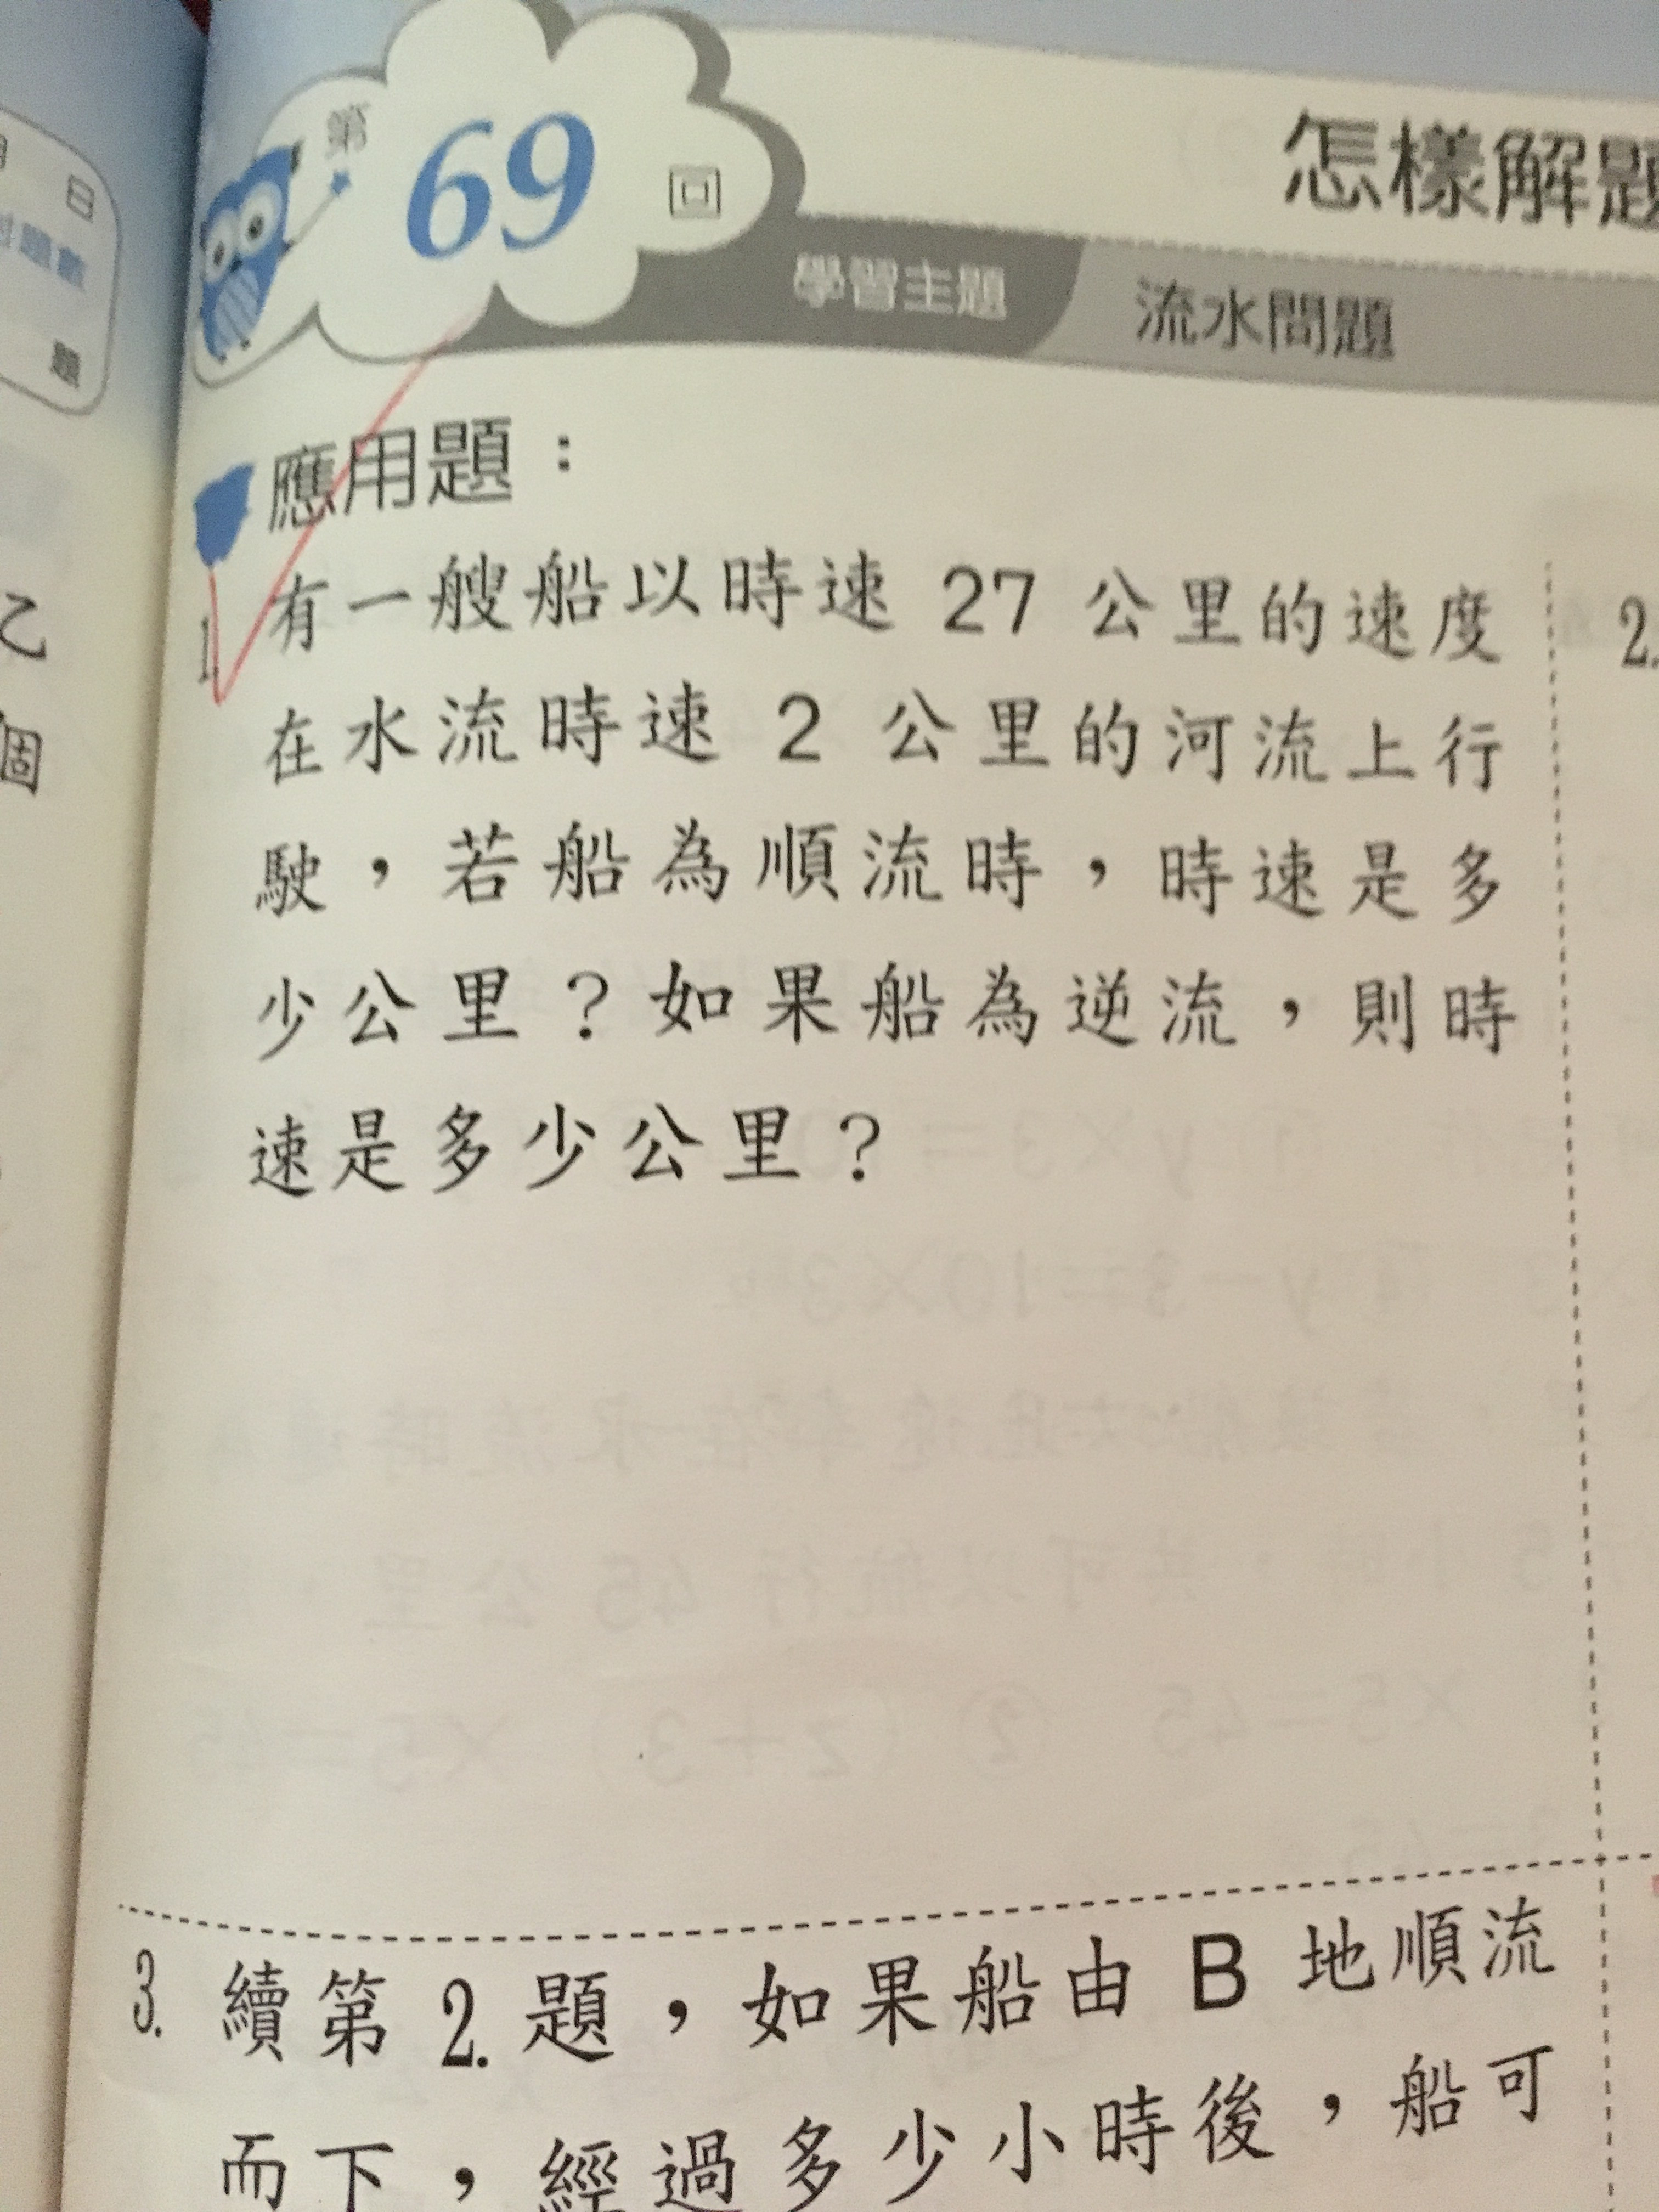 日
題
乙
個
第69回
怎樣解題
學習主題 流水問題
應用題：
1. 有一艘船以時速 27 公里的速度
在水流時速 2 公里的河流上行
駛，若船為順流時，時速是多
少公里？如果船為逆流，則時
速是多少公里？
2.
3. 續第 2. 題，如果船由 B 地順流
而下，經過多少小時後，船可